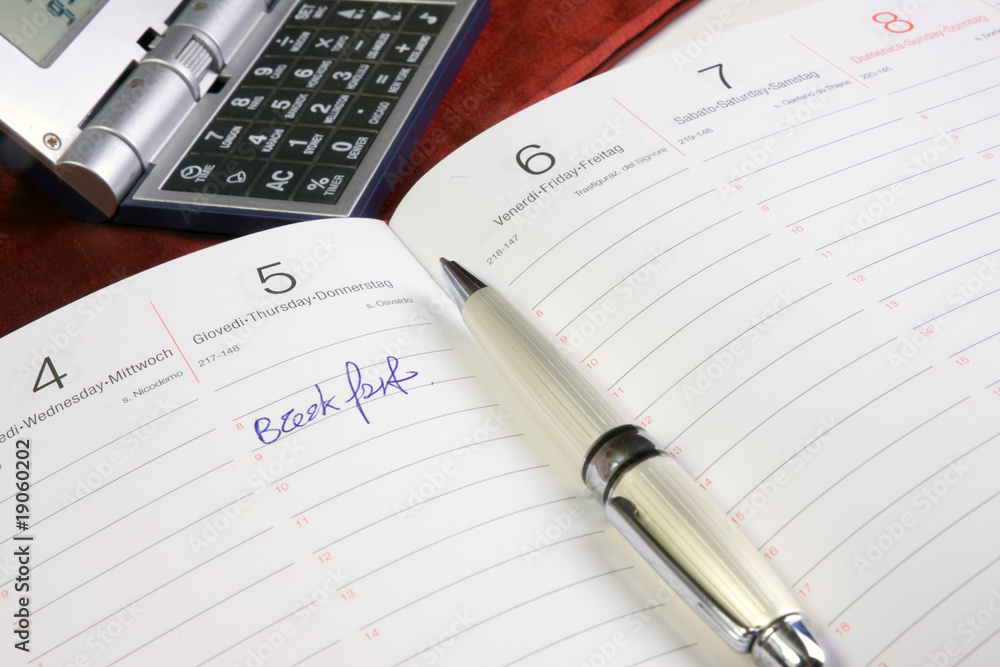 SET
÷ × - +
TOKYO ISLANDS BEIJING
9 6 3 =
BANGKOK HONGKONG MOSCOW NEW YORK
8 5 2 .
PARIS BERLIN CHICAGO
7 4 1 0
LONDON KARACHI SIDNEY DENVER
TIME
AC
%
TIMER
4
edi-Wednesday-Mittwoch
s. Nicodemo
5
Giovedì-Thursday-Donnerstag
217-148
s. Osvaldo
8
9
10
11
12
13
14
6
Venerdì-Friday-Freitag
218-147
Trasfiguraz. del Signore
8
9
10
11
12
13
14
15
16
17
18
7
Sabato-Saturday-Samstag
219-146
s. Gaetano da Thiene
8
9
10
11
12
13
14
15
8
Domenica-Sunday-Sonntag
220-145
s. Dom
Adobe Stock | #19060202